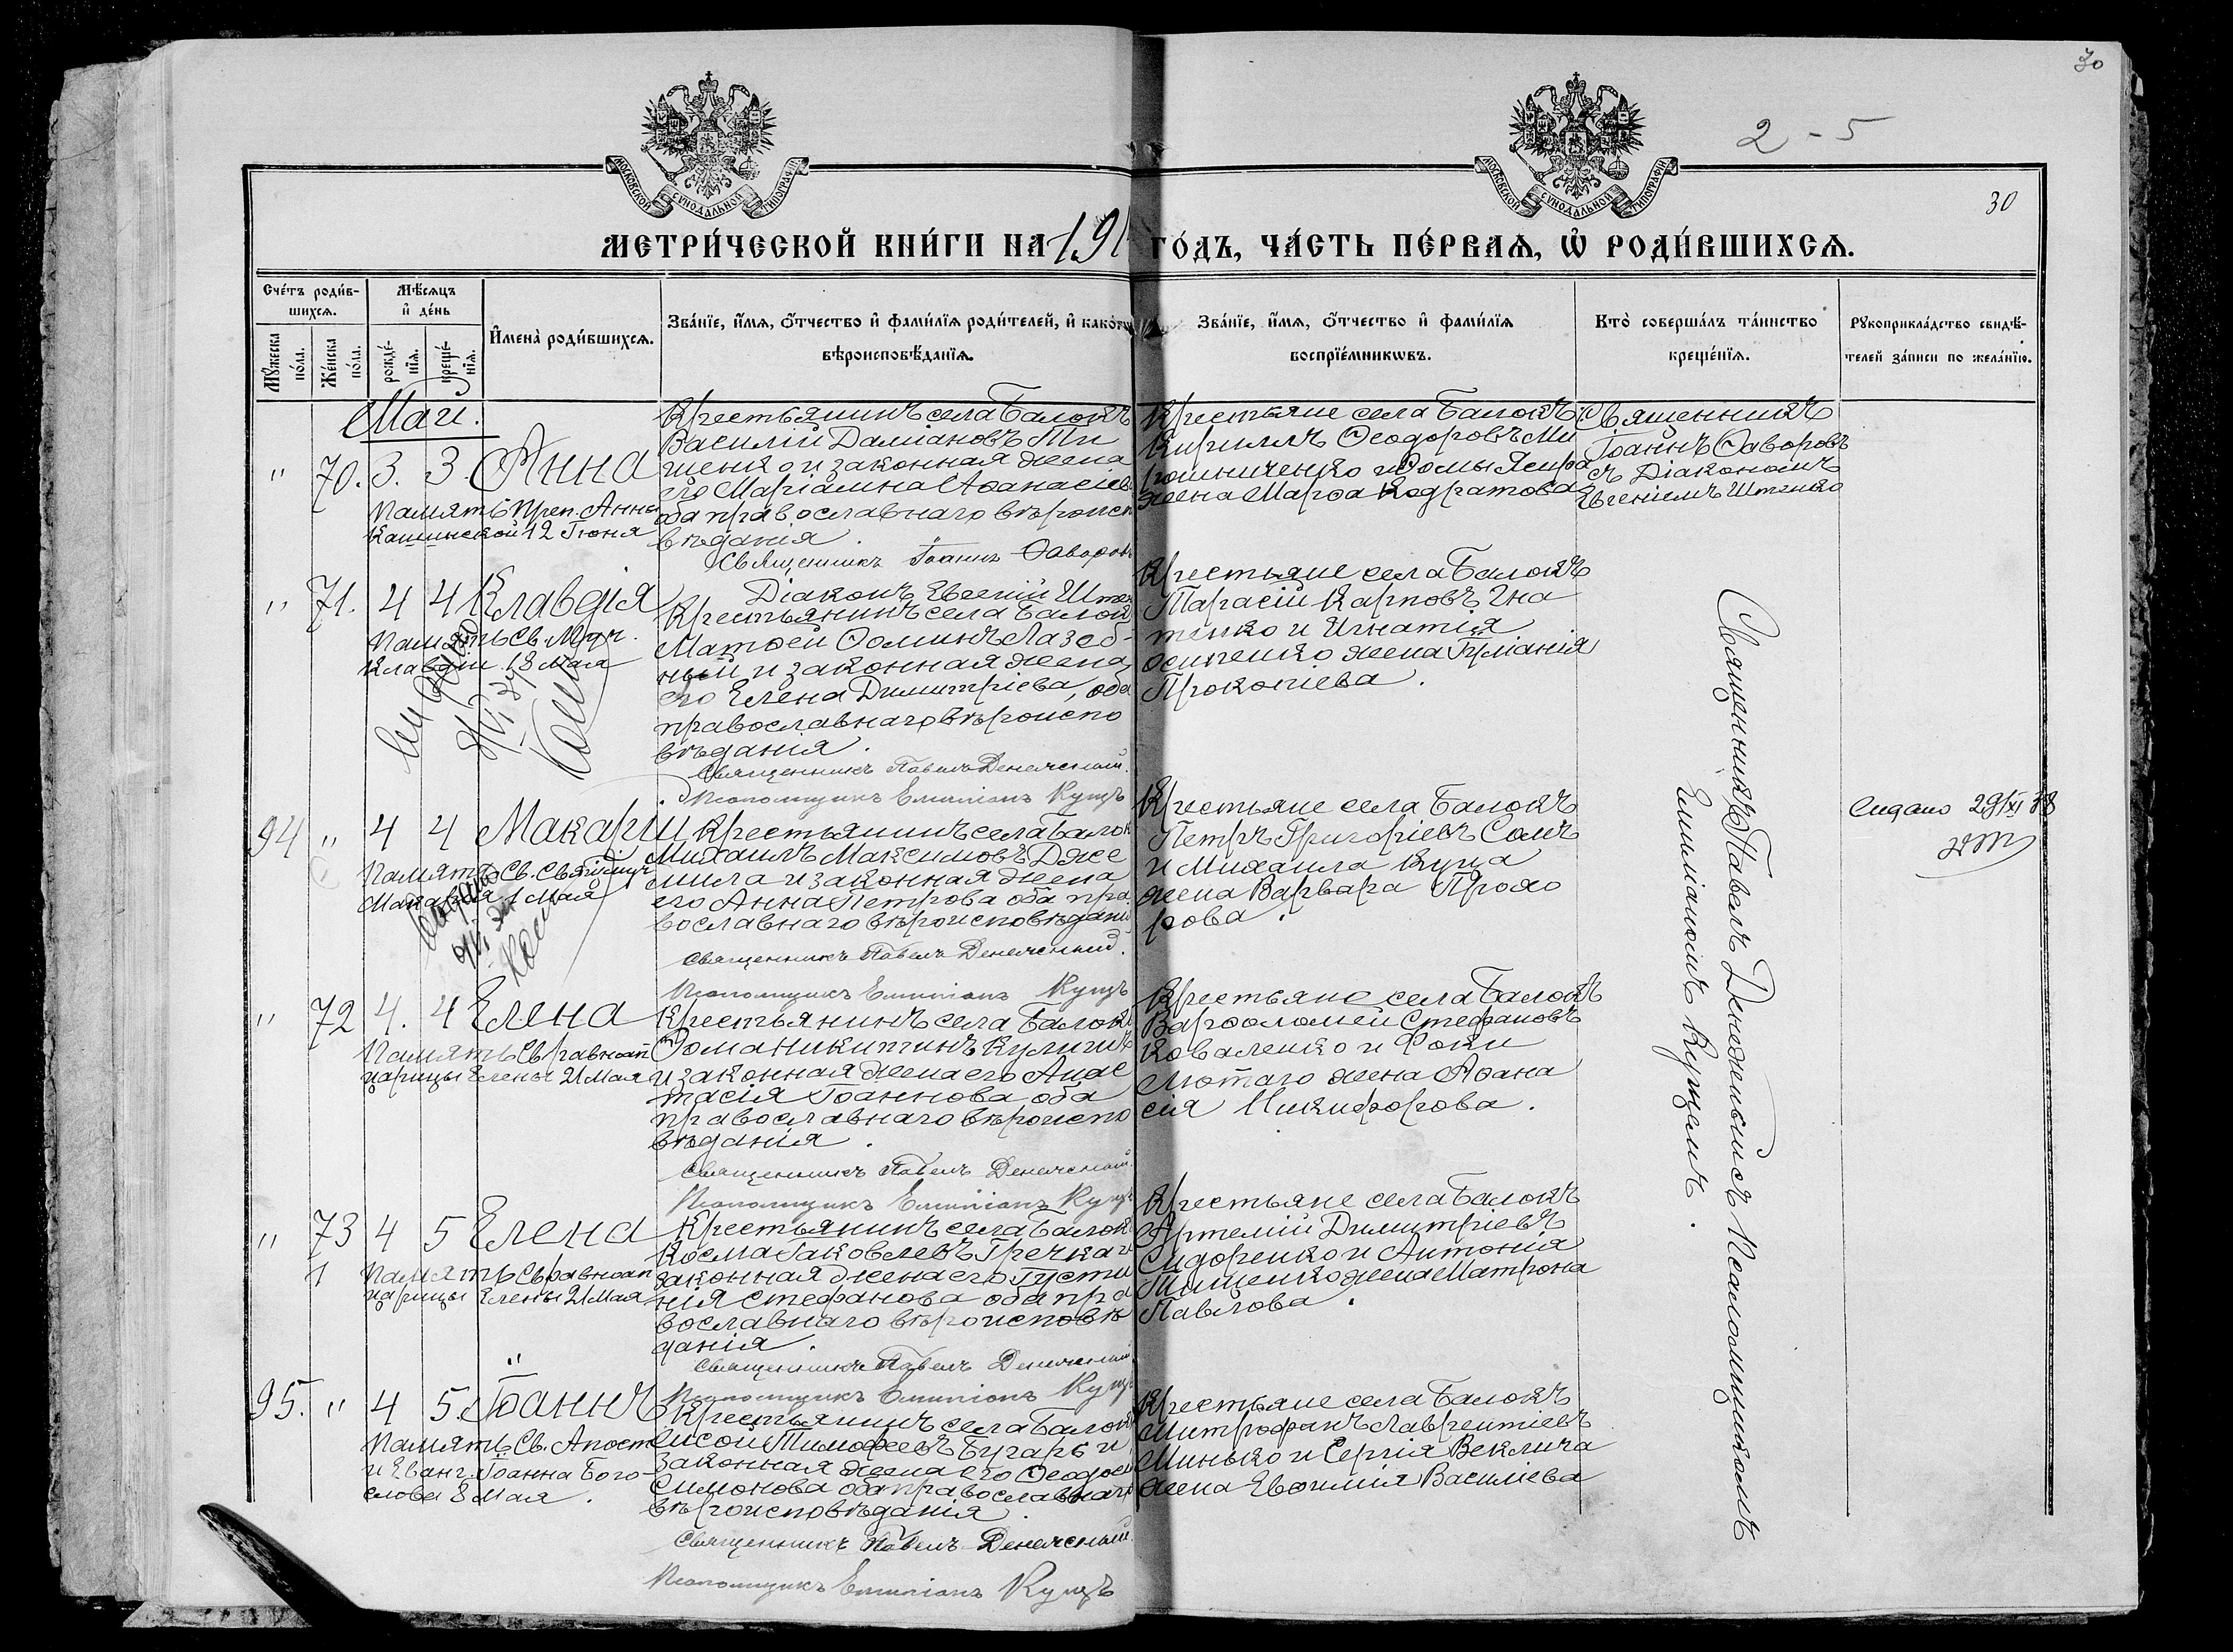 30
2 - 5
30
МОСКОВСКОЙ СѴНОДАЛЬНОЙ ТИПОГРАФІИ
МОСКОВСКОЙ СѴНОДАЛЬНОЙ ТИПОГРАФІИ
МЕТРИ́ЧЕСКОЙ КНИ́ГИ НА 191 ГО́ДЪ, ЧА́СТЬ ПЕ́РВАѦ, Ѡ҆ РОДИ́ВШИХСѦ.
Сче́тъ роди́в-
шихсѧ.
Мꙋ́жеска
по́ла.
Же́нска
по́ла.
Мѣ́сѧцъ
и҆ де́нь
рожде́-
нїѧ.
креще́-
нїѧ.
И҆мена̀ роди́вшихсѧ.
Зва́нїе, и҆́мѧ, ѻ҆́тчество и҆ фами́лїѧ роди́телей, и҆ како́гѡ
вѣроисповѣ́данїѧ.
Зва́нїе, и҆́мѧ, ѻ҆́тчество и҆ фами́лїѧ
воспрїе́мникѡвъ.
Кто̀ соверша́лъ та́инство
креще́нїѧ.
Рꙋкоприкла́дство свидѣ́-
телей за́писи по жела́нїю.
Май.
" 70. 3. 3. Анна
Память Преп. Анны
Кашинской 12 Іюня
Крестьянинъ села Балокъ
Василій Даміановъ Ти
щенко и законная жена
его Маріамна Аѳанасіев
оба православнаго вѣроисп
вѣданія.
Священникъ Іоаннъ Ѳаворовъ
Діаконъ Евгеній
Крестьяне села Балокъ
Кириллъ Ѳеодоровъ Ми
рошниченко и Ѳомы
жена Марѳа Кодратова
Священникъ
Іоаннъ Ѳаворовъ
съ Діакономъ
Евгеніемъ
" 71. 4 4 Клавдія
Память Св. Муч.
Клавдіи 18 Мая
Крестьянинъ села Балок
Матѳей Ѳоминъ Лазеб-
ный и законная жена
его Елена Димитріева, оба
православнаго вѣроиспо
вѣданія.
Священникъ Павелъ
Псаломщикъ Емиліанъ Кущъ
Крестьяне села Балокъ
Тарасій Карповъ Гна
тенко и Игнатія
Осипенко жена Іуліанія
Прокопіева.
94 " 4 4 Макарій
Память Св.
Макарія 1 Мая
Крестьянинъ села Балок
Михаилъ Максимовъ Дже
мила и законная жена
его Анна Петрова оба пра
вославнаго вѣроисповѣдані
Священникъ Павелъ
Псаломщикъ Емиліанъ Кущъ
Крестьяне села Балокъ
Петръ Григоріевъ Сомъ
и Михаила Куца
жена Варвара Прохо
рова.
29/XI 38
" 72 4. 4 Елена
Память Св. равноап
царицы Елены 21 Мая
Крестьянинъ села Балок
Ѳома Никитинъ
и законная жена его Анас
тасія Іоаннова оба
православнаго вѣроиспо
вѣданія.
Священникъ Павелъ
Псаломщикъ Емиліанъ Кущъ
Крестьяне села Балокъ
Варѳоломей Стефановъ
Коваленко и Фоки
Лютаго жена Аѳана
сія Никифорова.
" 73 4 5 Елена
Память Св. равноап
царицы Елены 21 Мая
Крестьянинъ села Балок
Косма Іаковлевъ Гречка и
законная жена его Іусти
нія Стефанова оба пра
вославнаго вѣроисповѣ
данія.
Священникъ Павелъ
Псаломщикъ Емиліанъ Кущъ
Крестьяне села Балокъ
Артемій Димитріевъ
Сидоренко и Антонія
Тищенко жена Матрона
Павлова.
95. " 4 5. Іоаннъ
Память Св. Апост
и Еванг. Іоанна Бого-
слова 8 Мая.
Крестьянинъ села Балок
Сысой Тимофеевъ Бугарь и
законная жена его Ѳеодос
Симонова оба православнаго
вѣроисповѣданія.
Священникъ Павелъ
Псаломщикъ Емиліанъ Кущъ
Крестьяне села Балокъ
Митрофанъ Лаврентіевъ
Минько и Сергія Веклича
жена Евѳимія Василіева
Священникъ Павелъ съ Псаломщикомъ
Емиліаномъ Кущемъ.